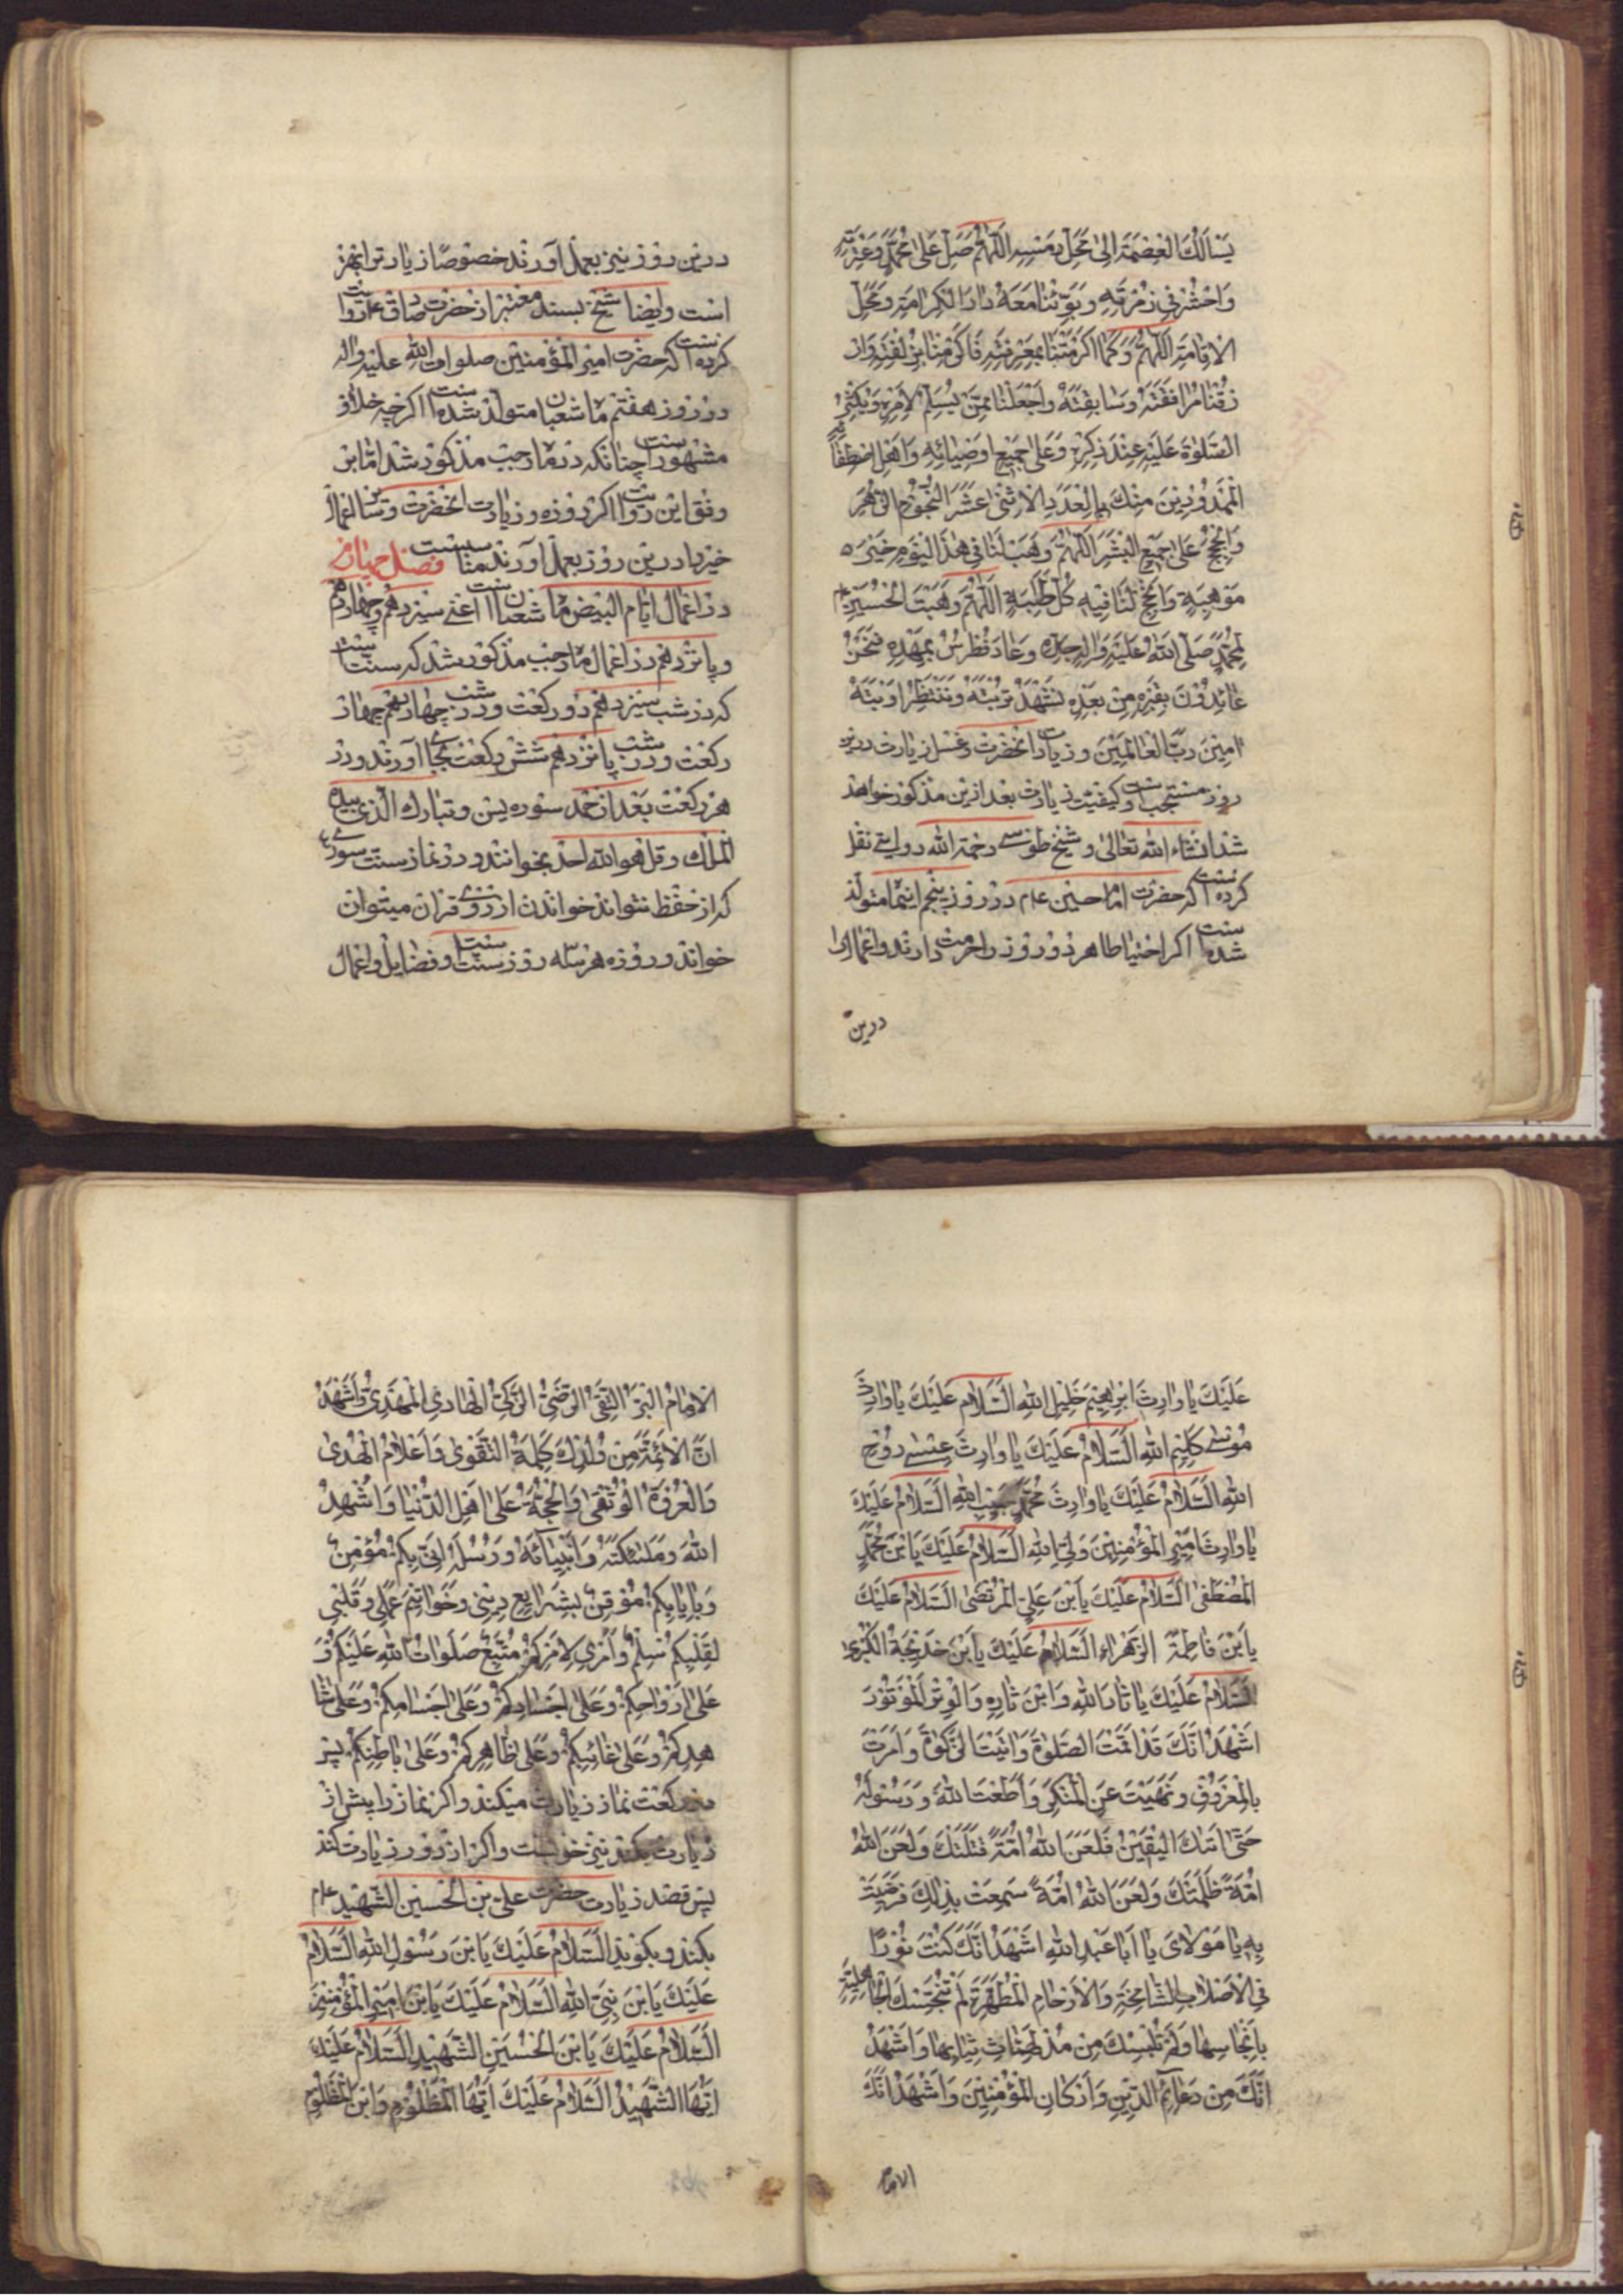 یَسْألُكَ الْعِصْمَةَ اِلیٰ مَحَلِّ رَمْسِهِ اَللّٰهُمَّ صَلِّ عَلیٰ مُحَمَّدٍ وَعِتْرَتِهِ
وَاحْشُرْنٰا فی زُمْرَتِهِ وَبَوِّئْنٰا مَعَهُ دٰارَ الْكَرٰامَةِ وَمَحَلَّ
الْاِقٰامَةِ اَللّٰهُمَّ وَكَمٰا اَكْرَمْتَنٰا بِمَعْرِفَتِهِ فَاَكْرِمْنٰا بِزُلْفَتِهِ وَارْ
زُقْنٰا مُرٰافَقَتَهُ وَسٰابِقَتَهُ وَاجْعَلْنٰا مِمَّنْ یُسَلِّمُ لِاَمْرِهِ وَیُكْثِرُ
الصَّلوٰةَ عَلَیْهِ عِنْدَ ذِكْرِهِ وَعَلیٰ جَمیٖعِ اَوْصِیٰائِهِ وَاَهْلِ اصْطِفٰائِهِ
الْمَمْدُوْدِیْنَ مِنْكَ بِالْعَدَدِ الْاِثْنیٰ عَشَرَ النُّجُوْمِ الزُّهَرِ
وَالْحُجَجِ عَلیٰ جَمیٖعِ الْبَشَرِ اَللّٰهُمَّ وَهَبْ لَنٰا فی هٰذَا الْیَوْمِ خَیْرَ
مَوْهِبَةٍ وَاَنْجِحْ لَنٰا فیٖهِ كُلَّ طَلِبَةٍ اَللّٰهُمَّ وَهَبْتَ الْحُسَیْنَ
لِمُحَمَّدٍ صَلَّی اللّٰهُ عَلَیْهِ وَاٰلِهِ جَدِّهِ وَعٰاذَ فُطْرُسُ بِمَهْدِهِ فَنَحْنُ
عٰائِذُوْنَ بِقَبْرِهِ مِنْ بَعْدِهِ نَشْهَدُ تُرْبَتَهُ وَنَنْتَظِرُ اَوْبَتَهُ
اٰمیٖنَ رَبَّ الْعٰالَمیٖنَ وزیارت انحضرت وغسل زیارت درین
روز مستحب است وکیفیت زیارت بعد ازین مذکور خواهد
شد انشاء الله تعالیٰ و شیخ طوسی رحمة الله روایتی نقل
کرده است که حضرت امام حسین علیه در روز پنجم اینماه متولد
شده است اکر احتیاطا هر دو روز را حرمت دارند و اعمال را
درین
درین روز نیز بعمل آورند خصوصًا زیارت را بهتر
است وایضا شیخ بسند معتبر از حضرت صادق علیه روایت
کرده است که حضرت امیر المؤمنین صلوات الله علیه واله
در روز هفتم ماه شعبان متولد شده است اکرچه خلاف
مشهور است چنانکه در ماه رجب مذکور شد اما بر
وفق این روایت اکر روزه وزیارت انحضرت وسایر اعمال
خیر را درین روز بعمل آورند مناسبست فصل چهارم
در اعمال ایام البیض ماه شعبان است اعنی سیزدهم وچهاردهم
و پانزدهم در اعمال ماه رجب مذکور شد که سنت است
که در شب سیزدهم دو رکعت و در شب چهاردهم چهار
رکعت و در شب پانزدهم شش رکعت بجا آورند و در
هر رکعت بعد از حمد سوره یس و تبارك الذی بیده
الملك و قل هو الله احد بخوانند و در نماز سنت سورهٔ
که از حفظ نتواند خواندن از روی قران میتوان
خواند و روزه هر سه روز سنت است و فضایل و اعمال
عَلَیْكَ یٰا وٰارِثَ اِبْرٰهیٖمَ خَلیٖلِ اللّٰهِ اَلسَّلٰامُ عَلَیْكَ یٰا وٰارِثَ
مُوسیٰ كَلیٖمِ اللّٰهِ اَلسَّلٰامُ عَلَیْكَ یٰا وٰارِثَ عیٖسیٰ رُوْحِ
اللّٰهِ اَلسَّلٰامُ عَلَیْكَ یٰا وٰارِثَ مُحَمَّدٍ حَبیٖبِ اللّٰهِ اَلسَّلٰامُ عَلَیْكَ
یٰا وٰارِثَ اَمیٖرِ الْمُؤْمِنیٖنَ وَلِیِّ اللّٰهِ اَلسَّلٰامُ عَلَیْكَ یَابْنَ مُحَمَّدٍ
الْمُصْطَفیٰ اَلسَّلٰامُ عَلَیْكَ یَابْنَ عَلِیٍّ الْمُرْتَضیٰ اَلسَّلٰامُ عَلَیْكَ
یَابْنَ فٰاطِمَةَ الزَّهْرٰاءِ اَلسَّلٰامُ عَلَیْكَ یَابْنَ خَدیٖجَةَ الْكُبْریٰ
اَلسَّلٰامُ عَلَیْكَ یٰا ثٰارَ اللّٰهِ وَابْنَ ثٰارِهِ وَالْوِتْرَ الْمَوْتُوْرَ
اَشْهَدُ اَنَّكَ قَدْ اَقَمْتَ الصَّلوٰةَ وَاٰتَیْتَ الزَّكوٰةَ وَاَمَرْتَ
بِالْمَعْرُوْفِ وَنَهَیْتَ عَنِ الْمُنْكَرِ وَاَطَعْتَ اللّٰهَ وَرَسُوْلَهُ
حَتّیٰ اَتٰیكَ الْیَقیٖنُ فَلَعَنَ اللّٰهُ اُمَّةً قَتَلَتْكَ وَلَعَنَ اللّٰهُ
اُمَّةً ظَلَمَتْكَ وَلَعَنَ اللّٰهُ اُمَّةً سَمِعَتْ بِذٰلِكَ فَرَضِیَتْ
بِهِ یٰا مَوْلٰایَ یٰا اَبٰا عَبْدِ اللّٰهِ اَشْهَدُ اَنَّكَ كُنْتَ نُوْرًا
فِی الْاَصْلٰابِ الشّٰامِخَةِ وَالْاَرْحٰامِ الْمُطَهَّرَةِ لَمْ تُنَجِّسْكَ الْجٰاهِلِیَّةُ
بِاَنْجٰاسِهٰا وَلَمْ تُلْبِسْكَ مِنْ مُدْلَهِمّٰاتِ ثِیٰابِهٰا وَاَشْهَدُ
اَنَّكَ مِنْ دَعٰائِمِ الدّیٖنِ وَاَرْكٰانِ الْمُؤْمِنیٖنَ وَاَشْهَدُ اَنَّكَ
الامام
الْاِمٰامُ الْبَرُّ التَّقِیُّ الرَّضِیُّ الزَّكِیُّ الْهٰادِی الْمَهْدِیُّ وَاَشْهَدُ
اَنَّ الْاَئِمَّةَ مِنْ وُلْدِكَ كَلِمَةُ التَّقْویٰ وَاَعْلٰامُ الْهُدیٰ
وَالْعُرْوَةُ الْوُثْقیٰ وَالْحُجَّةُ عَلیٰ اَهْلِ الدُّنْیٰا وَاُشْهِدُ
اللّٰهَ وَمَلٰئِكَتَهُ وَاَنْبِیٰائَهُ وَرُسُلَهُ اَنّیٖ بِكُمْ مُؤْمِنٌ
وَبِاِیٰابِكُمْ مُوْقِنٌ بِشَرٰایِعِ دیٖنی وَخَوٰاتیٖمِ عَمَلی وَقَلْبی
لِقَلْبِكُمْ سِلْمٌ وَاَمْری لِاَمْرِكُمْ مُتَّبِعٌ صَلَوٰاتُ اللّٰهِ عَلَیْكُمْ وَ
عَلیٰ اَرْوٰاحِكُمْ وَعَلیٰ اَجْسٰادِكُمْ وَعَلیٰ اَجْسٰامِكُمْ وَعَلیٰ شٰا
هِدِكُمْ وَعَلیٰ غٰائِبِكُمْ وَعَلیٰ ظٰاهِرِكُمْ وَعَلیٰ بٰاطِنِكُمْ پس
دو رکعت نماز زیارت میکند و اکر نماز را پیش از
زیارت بکند نیز خوبست و اکر از دور زیارت کند
پس قصد زیارت حضرت علی بن الحسین الشهید علیه
بکند و بکوید اَلسَّلٰامُ عَلَیْكَ یَابْنَ رَسُوْلِ اللّٰهِ اَلسَّلٰامُ
عَلَیْكَ یَابْنَ نَبِیِّ اللّٰهِ اَلسَّلٰامُ عَلَیْكَ یَابْنَ اَمیٖرِ الْمُؤْمِنیٖنَ
اَلسَّلٰامُ عَلَیْكَ یَابْنَ الْحُسَیْنِ الشَّهیٖدِ اَلسَّلٰامُ عَلَیْكَ
اَیُّهَا الشَّهیٖدُ اَلسَّلٰامُ عَلَیْكَ اَیُّهَا الْمَظْلُوْمُ وَابْنَ الْمَظْلُوْمِ